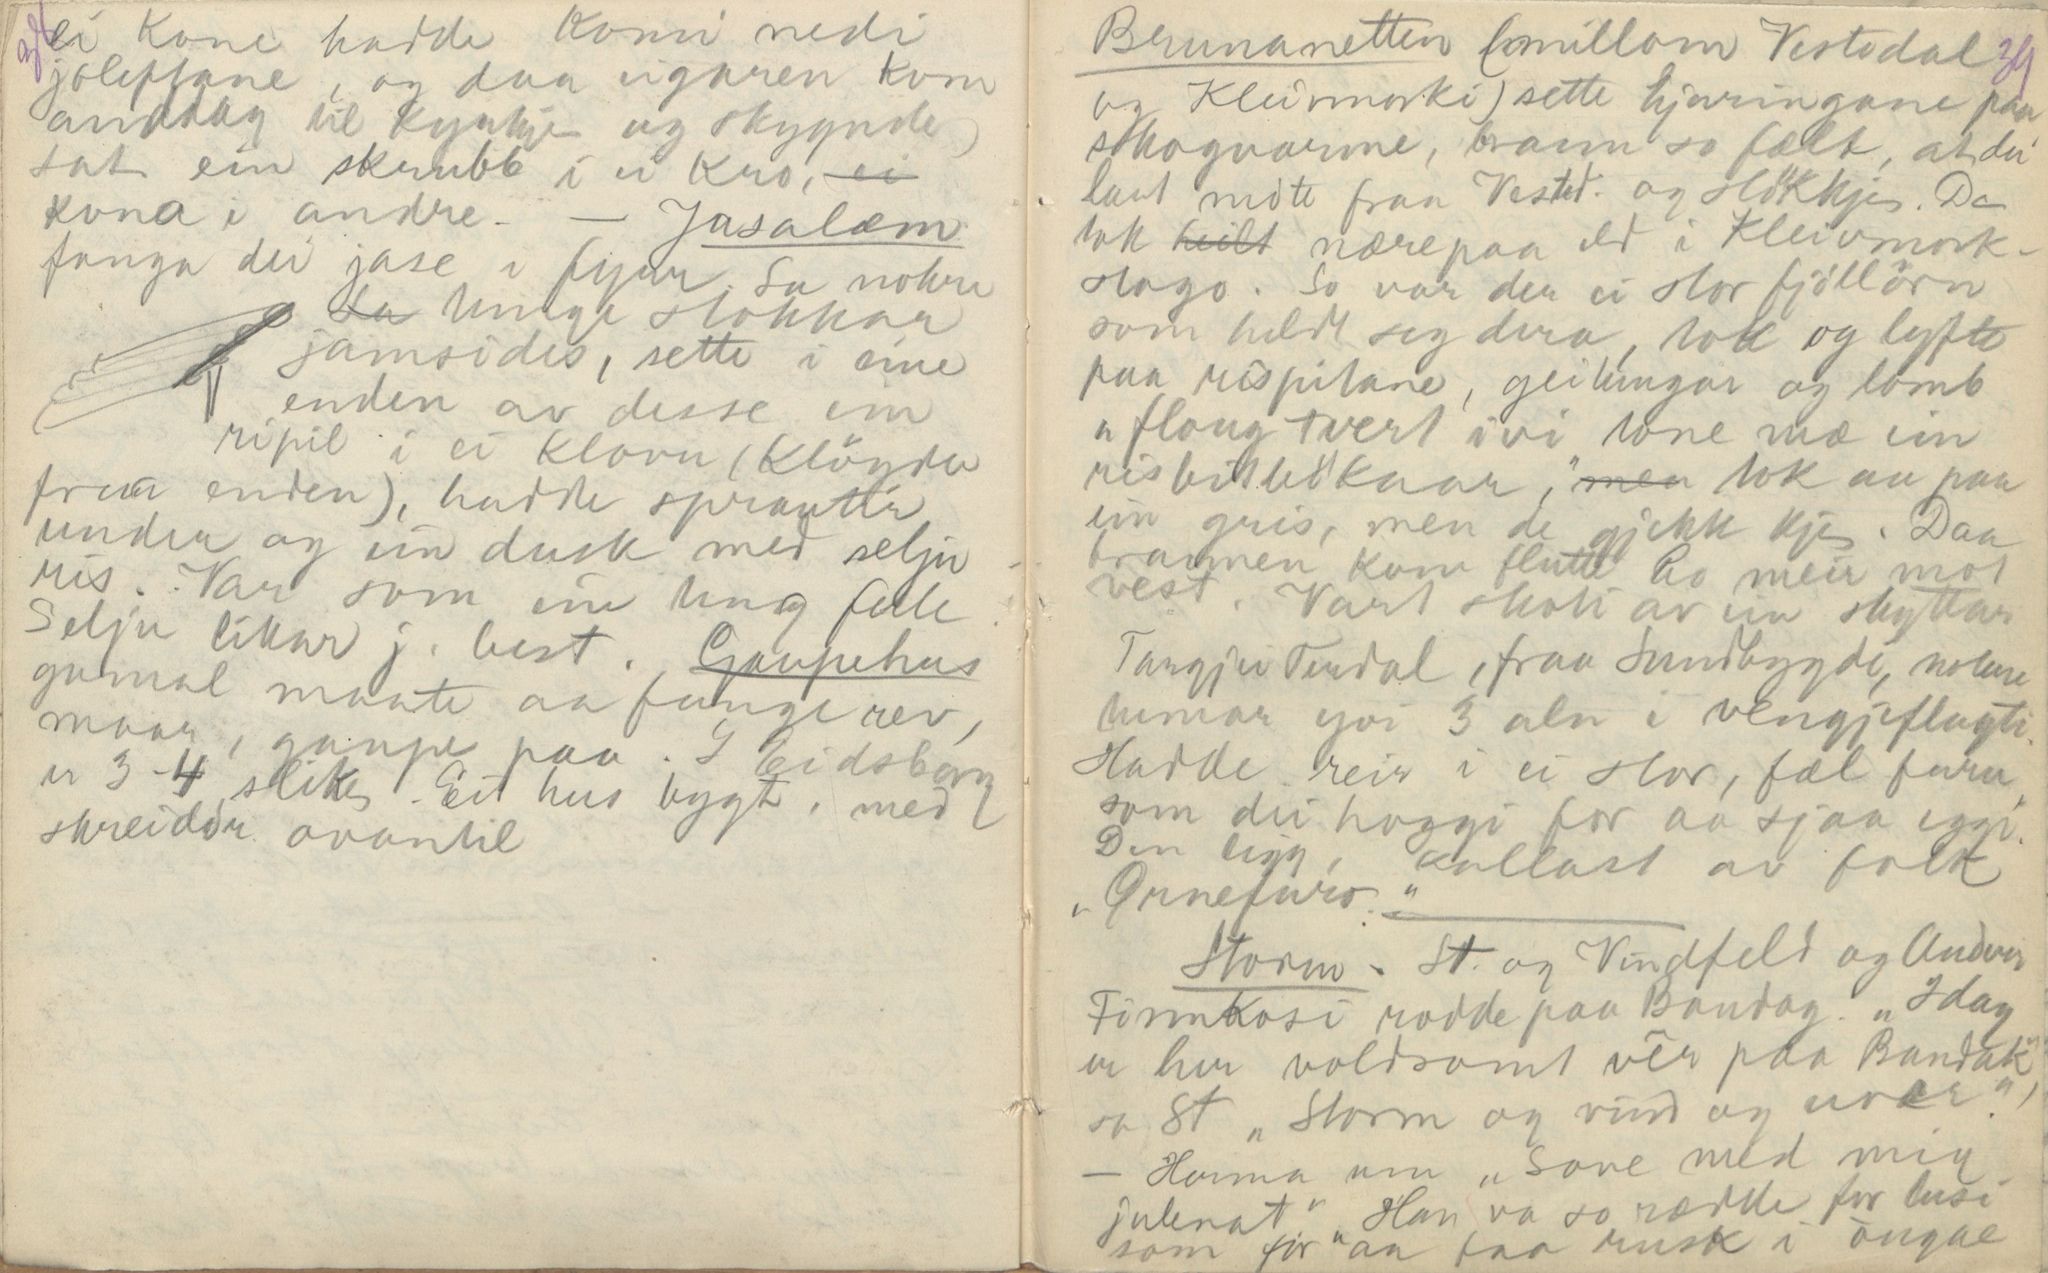 38
ei Kone hadde Komi nedi
joleftane, og daa eigaren Kom
anddag til kyrkje og skygnde,
sat ein skrubb i ei Kro, ei
kona i andre. — Jasalæm
fanga dei jase i fyrr. Sa nokre
La tunge stokkar
jamsides, sette i eine
enden av desse ein
ripil i ei Klovu (Klöyvde
fraa enden), hadde sprautir
under og ein dusk med selju
ris. Var som ein tung felle
Selju likar j. best. Gaupehus
gamal maate aa fange rev,
maar, gaupe paa. I Eidsborg
er 3-4 slike. Eit hus bygt, med
skreidör ovantil
39
Brunanetten (millom Vestsdal
og Kleivmorki) sette hjuringane paa
skogvarme, brann so fælt, at dei
laut möte fraa Vestd. og Skökkje. Da
tok heilt nærepaa eld i Kleivmork-
skogo. So var der ei stor fjöllörn
som heldt seg dera, tok og lyfte
paa rispilane, geitungar og lomb
"floug tvert ivi tone mæ ein
risbitbökaar," men tok au paa
ein gris, men de gjekk kje. Daa
brannen kom flutte ho meir mot
vest. Vart skoti av ein skyttar
Targjei Terdal, fraa Sundbygdi, nokre
tumar yvi 3 aln i vengjeflagti.
Hadde reir i ei stor, fæl furu,
som dei hoggi for aa sjaa eggi.
Den ligg, kallast av folk
"Ørnefuro."
Storm. St. og Vindfeld og Anders
Finnkosi rodde paa Bandag. "Idag
er her voldsomt vêr paa Bandak",
sa St "Storm og vind og uvær".
— Horma um "Sove med mig
julenat" "Han va so rædde for lusi
som for aa faa rusk i ougae